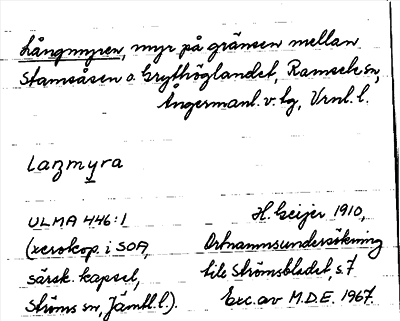 Långmyren, myr på gränsen mellan
Stamsåsen o. Grythöglandet, Ramsele sn,
Ångermanl. v. tg, Vrnl. l.
lazmyra
ULMA 446:1
(xerokop. i SOA,
särsk. kapsel,
Ströms sn, Jämtl. l.).
H. Geijer 1910,
Ortnamnsundersökning
till Strömsbladet, s. 7.
Exc. av M.D.E. 1967.